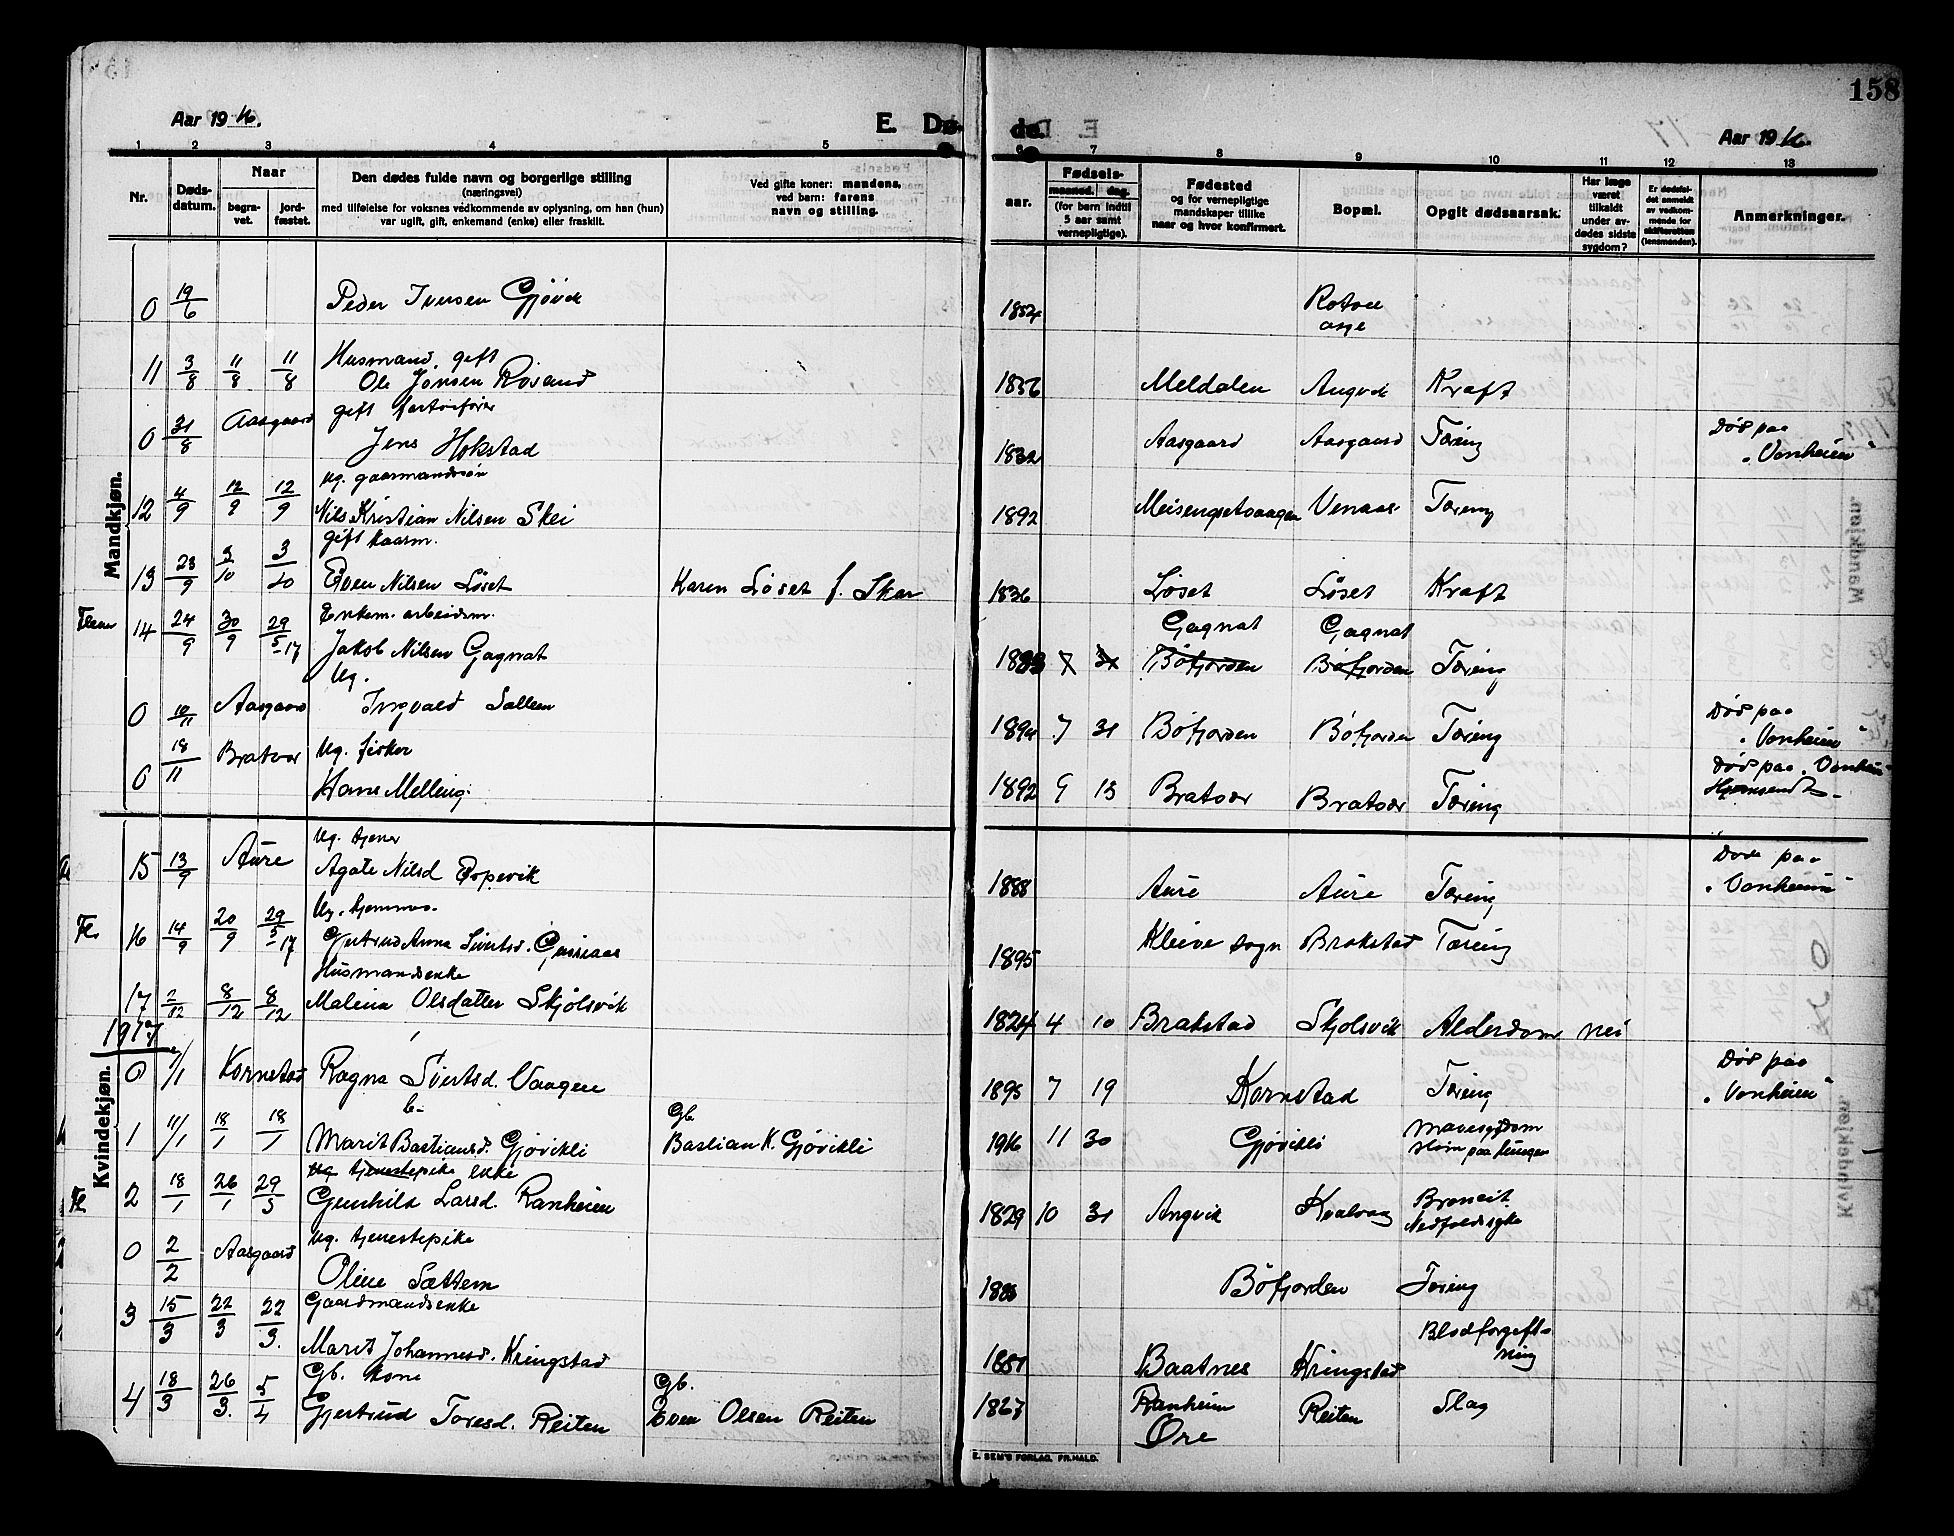 158
Aar 19 16.
E. Dø- de.
Aar 19 16.
1 2 3 4 5 6 7 8 9 10 11 12 13
Nr.
Døds-
datum.
Naar
begra-
vet.
jord-
fæstet.
Den dødes fulde navn og borgerlige stilling
(næringsvei)
med tilføielse for voksnes vedkommende av oplysning, om han (hun)
var ugift, gift, enkemand (enke) eller fraskilt.
Ved gifte koner: mandens,
ved børn: farens
navn og stilling.
aar.
Fødsels-
maaned. dag.
(for børn indtil
5 aar samt
vernepligtige).
Fødested
og for vernepligtige
mandskaper tillike
naar og hvor konfirmert.
Bopæl.
Opgit dødsaarsak.
Har læge
været
tilkaldt
under av-
dødes sidste
sygdom?
Er dødsfal-
det anmeldt
av vedkom-
mende for
skifteretten
(lensmanden).
Anmerkninger.
Mandkjøn.
0 19/6 Peder Iversen Gjøvik 1854
11 3/8 11/8 11/8 Husmand, gift
Ole Jonsen Rosand 1856 Meldalen Angvik Kraft
0 31/8 Aasgaard gift
Jens Hokstad 1832 Aasgaard Aasgaard Tæring Død paa
"Vonheim"
12 4/9 12/9 12/9 ug. gaarmandssøn
Nils Kristian Nilsen Skei 1892 Tæring
13 23/9 3/10 3/10 gift kaarm.
Even Nilsen Løset Karen Løset f. Skar 1836 Løset Løset Kraft
14 24/9 30/9 29/5-17 Enkem. arbeidsm.
Jakob Nilsen Gagnat 1883 7 31 Gagnat Gagnat
Bøfjorden Bøfjorden Tæring
0 10/11 Aasgaard Ug.
Ingvald Sættem 1894 7 31 Bøfjorden Bøfjorden Tæring Død paa
"Vonheim"
0 18/11 Bratvær Ug. fisker
Hans Melling. 1892 9 13 Bratvær Bratvær Tæring Død paa "Vonheim"
Kvindekjøn.
15 13/9 Aure Ug. tjener
Agate Nilsd 1888 Aure Aure Tæring Døde paa
"Vonheim"
Fl. 16 14/9 20/9 29/5-17 Ug. hjemmev.
Gjertrud Anna Sivertsd. 1895 Kleive sogn Brakstad Tæring
17 2/12 8/12 8/12 Husmandsenke
Malena Olsdatter Skjølsvik 1824 4 10 Brakstad Skjølsvik Alderdom nei
1917
0 1/1 Kornstad Ragna Sivertsd. Vaagen 1895 7 19 Kornstad Tæring Død paa
"Vonheim"
1 11/1 18/1 18/1 b.
Marit Bastiansd. Gjøvikli Gb.
Bastian K. Gjøvikli 1916 11 30 Gjøvikli Mavesygdom
slim paa lungen
Fl 2 18/1 26/1 29/5 Ug tjenestepike enke
Gunhild Larsd. Ranheim 1829 10 31 Angvik Kvalvaag Bronkit.
Nedfaldssyke
0 2/2 Aasgaard Ug. tjenestepike
Oline Sættem Bøfjorden Tæring
3 15/3 22/3 22/3. Gaardmandsenke
Marit Johannesd. Kringstad 1851 Baatnes Kringstad Blodforgift-
ning
4 18/3 26/3. 5/4 Gb. kone
Gjertrud Toresd. Reiten Gb.
Even Olsen Reiten 1867 Ranheim
Øre Reiten Slag
Kvindekjøn.
E. SEM'S FORLAG, FR.HALD.